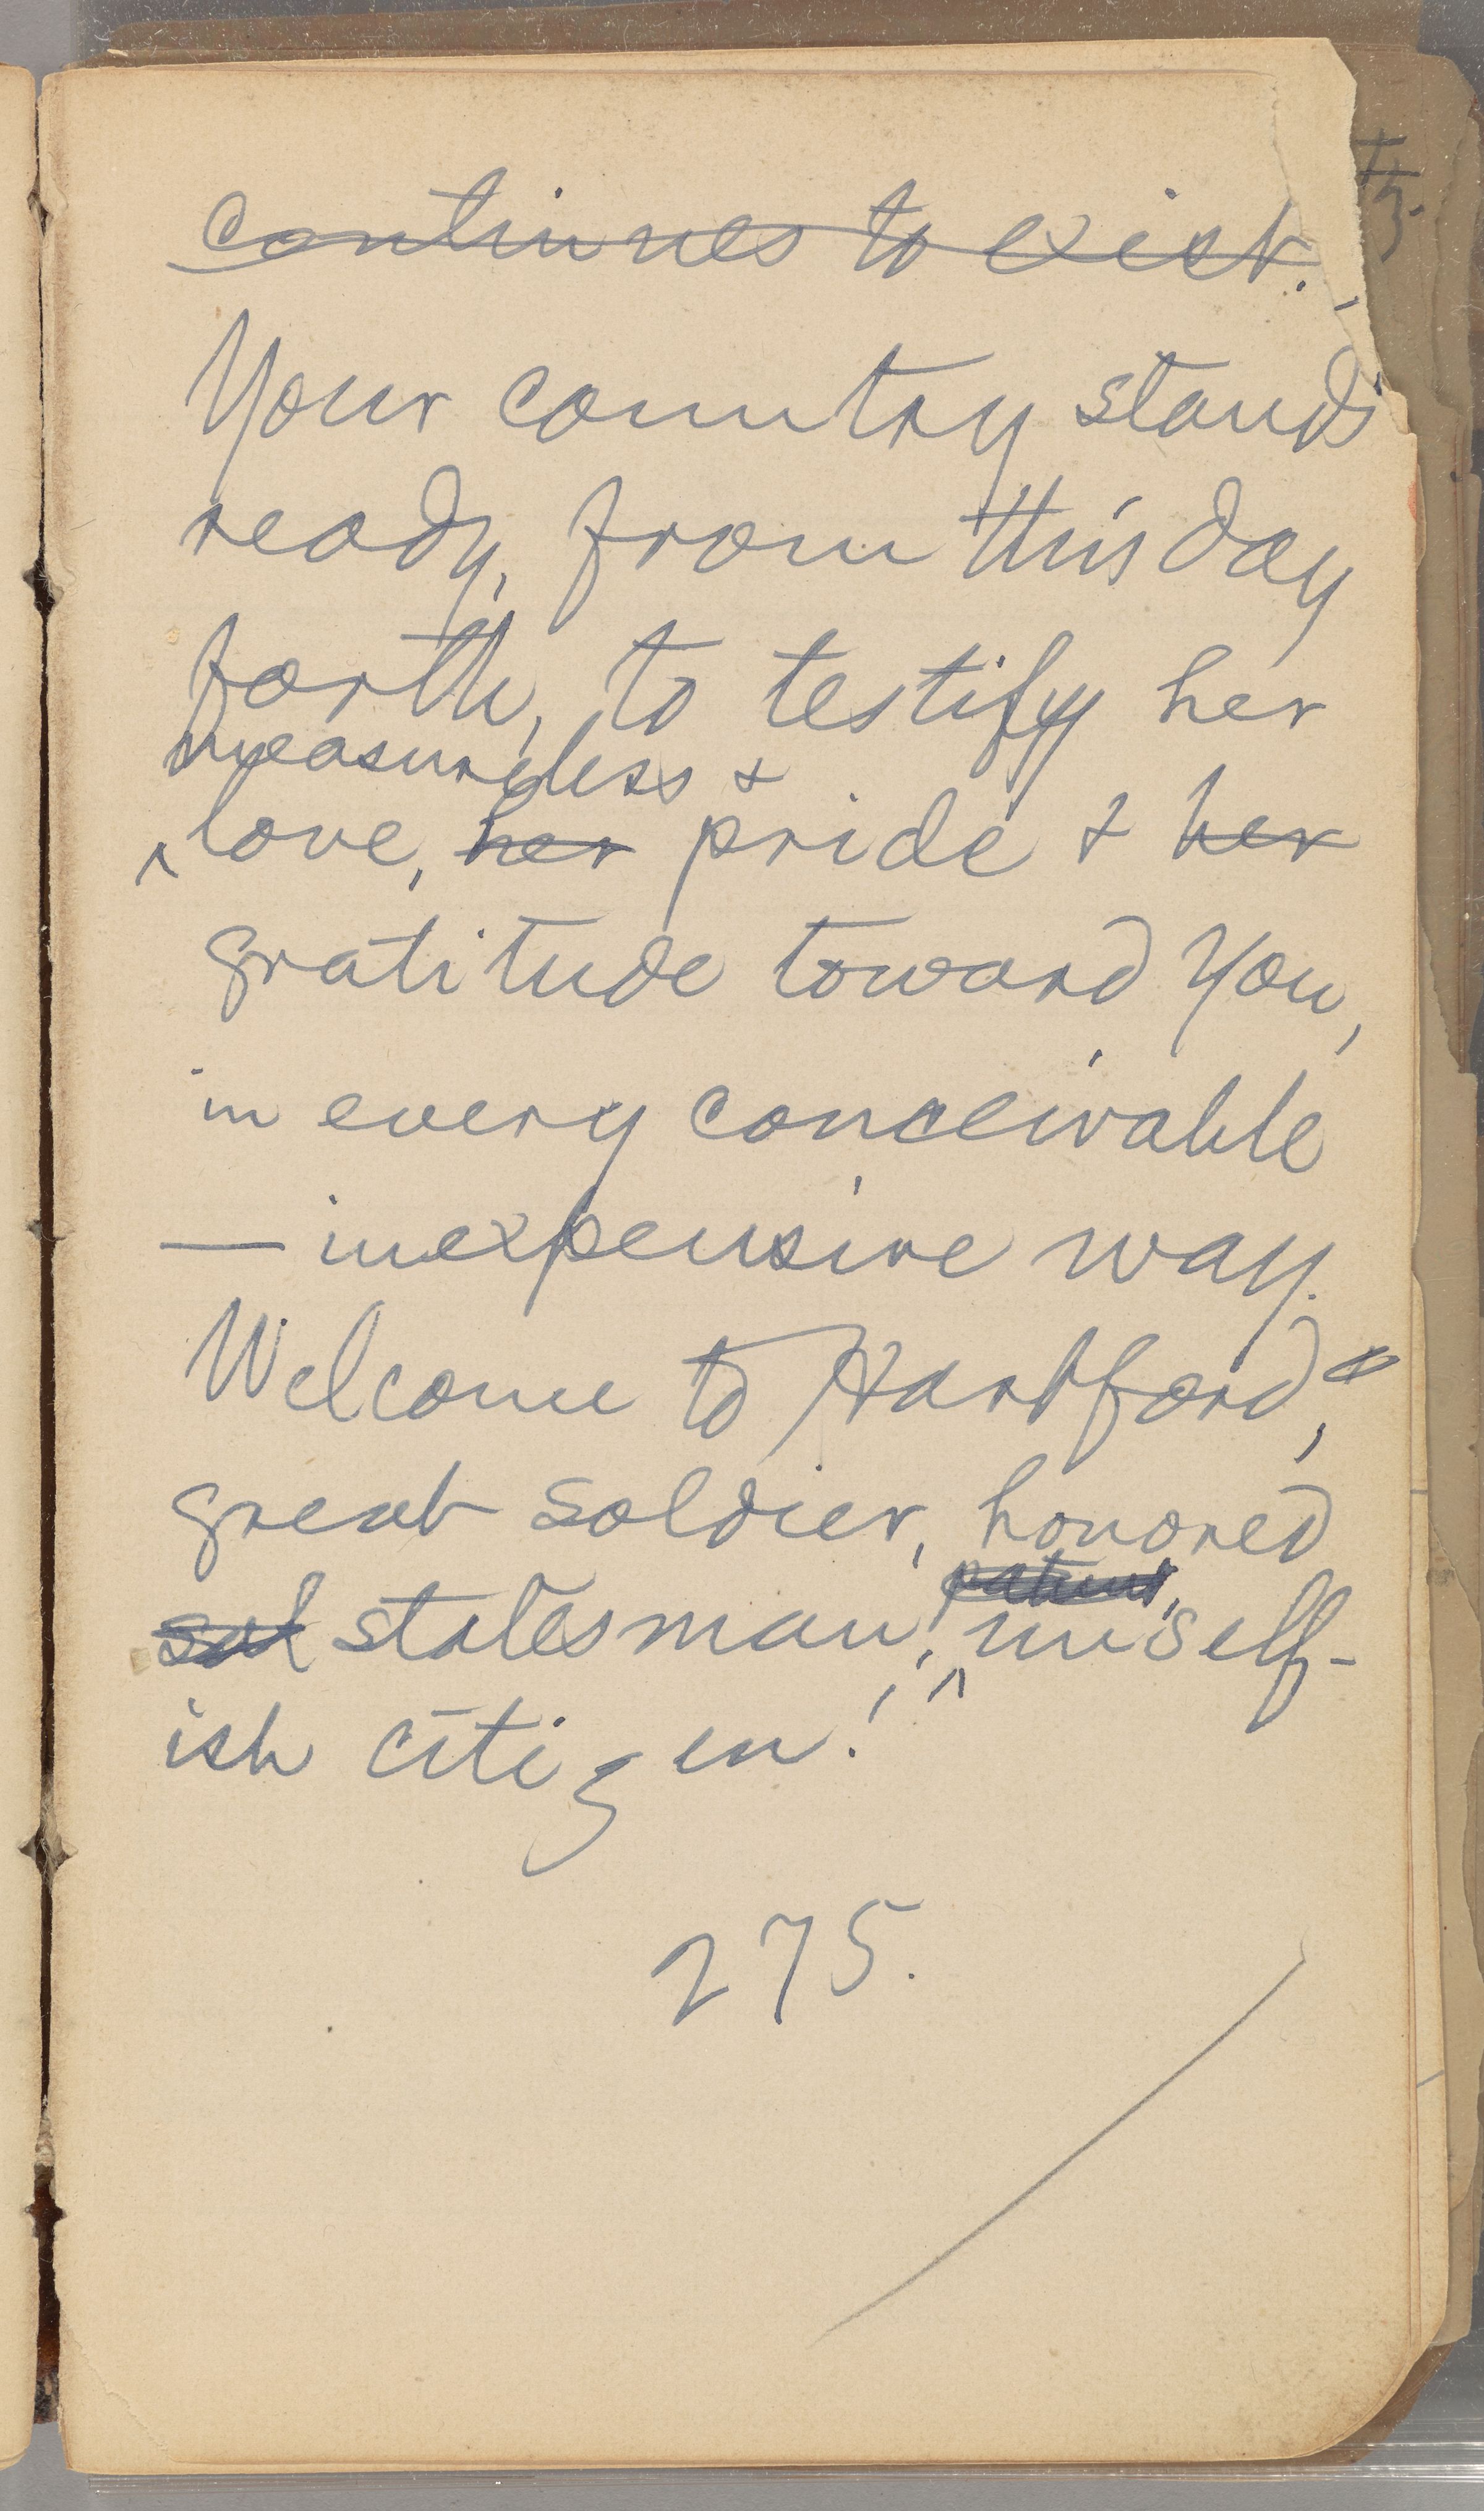 continues to exist.
Your country stands
ready, from this day
forth, to testify her
measureless &
love, her pride & her
gratitude toward you,
in every conceivable
— inexpensive way.
Welcome to Hartford,
great soldier, honored
statesman,
unself-
ish citizen!
275.